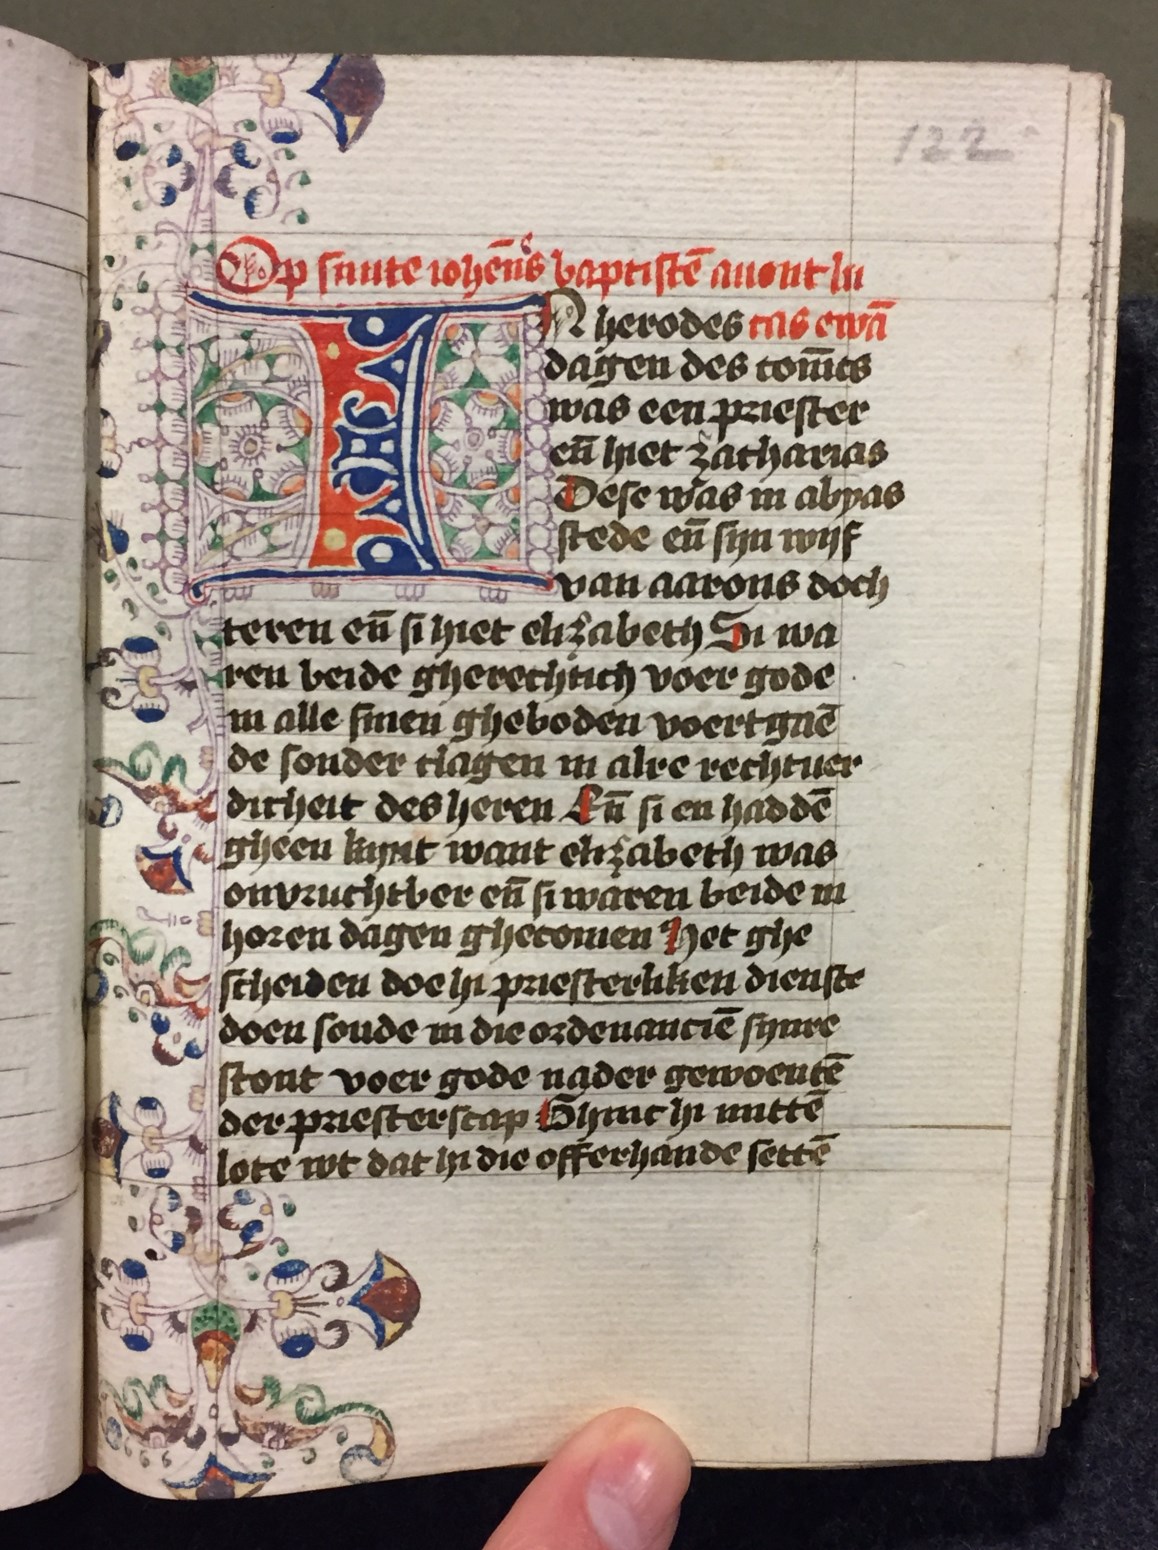 122
Op sinte iohēns baptistē auont lu
IN herodes cas ewā
dagen des conīcs
was een priester
eñ hiet zacharias
Dese was in abyas
stede eñ sijn wijf
van aarons doch
teren eñ si hiet elizabeth Si wa
ren beide gherechtich voer gode
in alle sinen gheboden voertgaē
de sonder clagen in alre rechtuer
dicheit des heren Eñ si en haddē
gheen kijnt want elizabeth was
onvruchtber eñ si waren beide in
horen dagen ghecomen Het ghe
scheiden doe hi priesterliken dienste
doen soude in die ordenanciē sijnre
stont voer gode nader gewoentē
der priesterscap Ghinc hi mittē
lote wt dat hi die offerhande settē